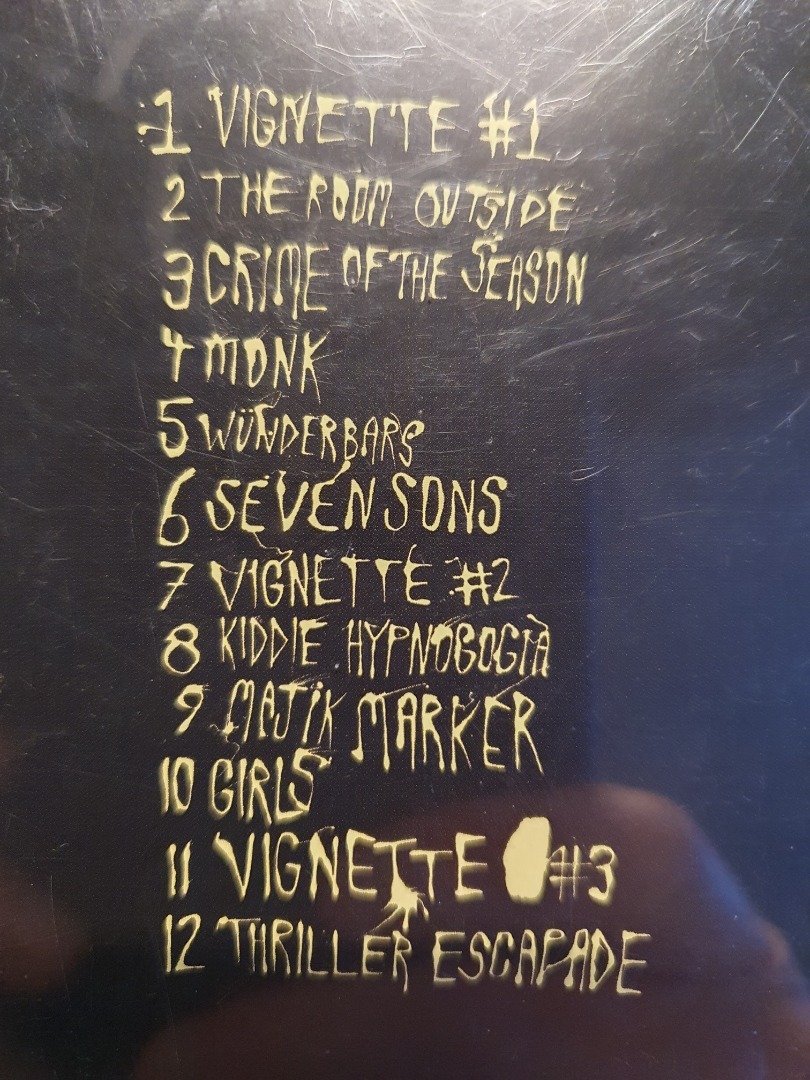 1 VIGNETTE #1
2 THE ROOM OUTSIDE
3 CRIME OF THE SEASON
4 MONK
5 WÜNDERBARS
6 SEVEN SONS
7 VIGNETTE #2
8 KIDDIE HYPNOGOGIA
9 MAJIK MARKER
10 GIRLS
11 VIGNETTE #3
12 THRILLER ESCAPADE